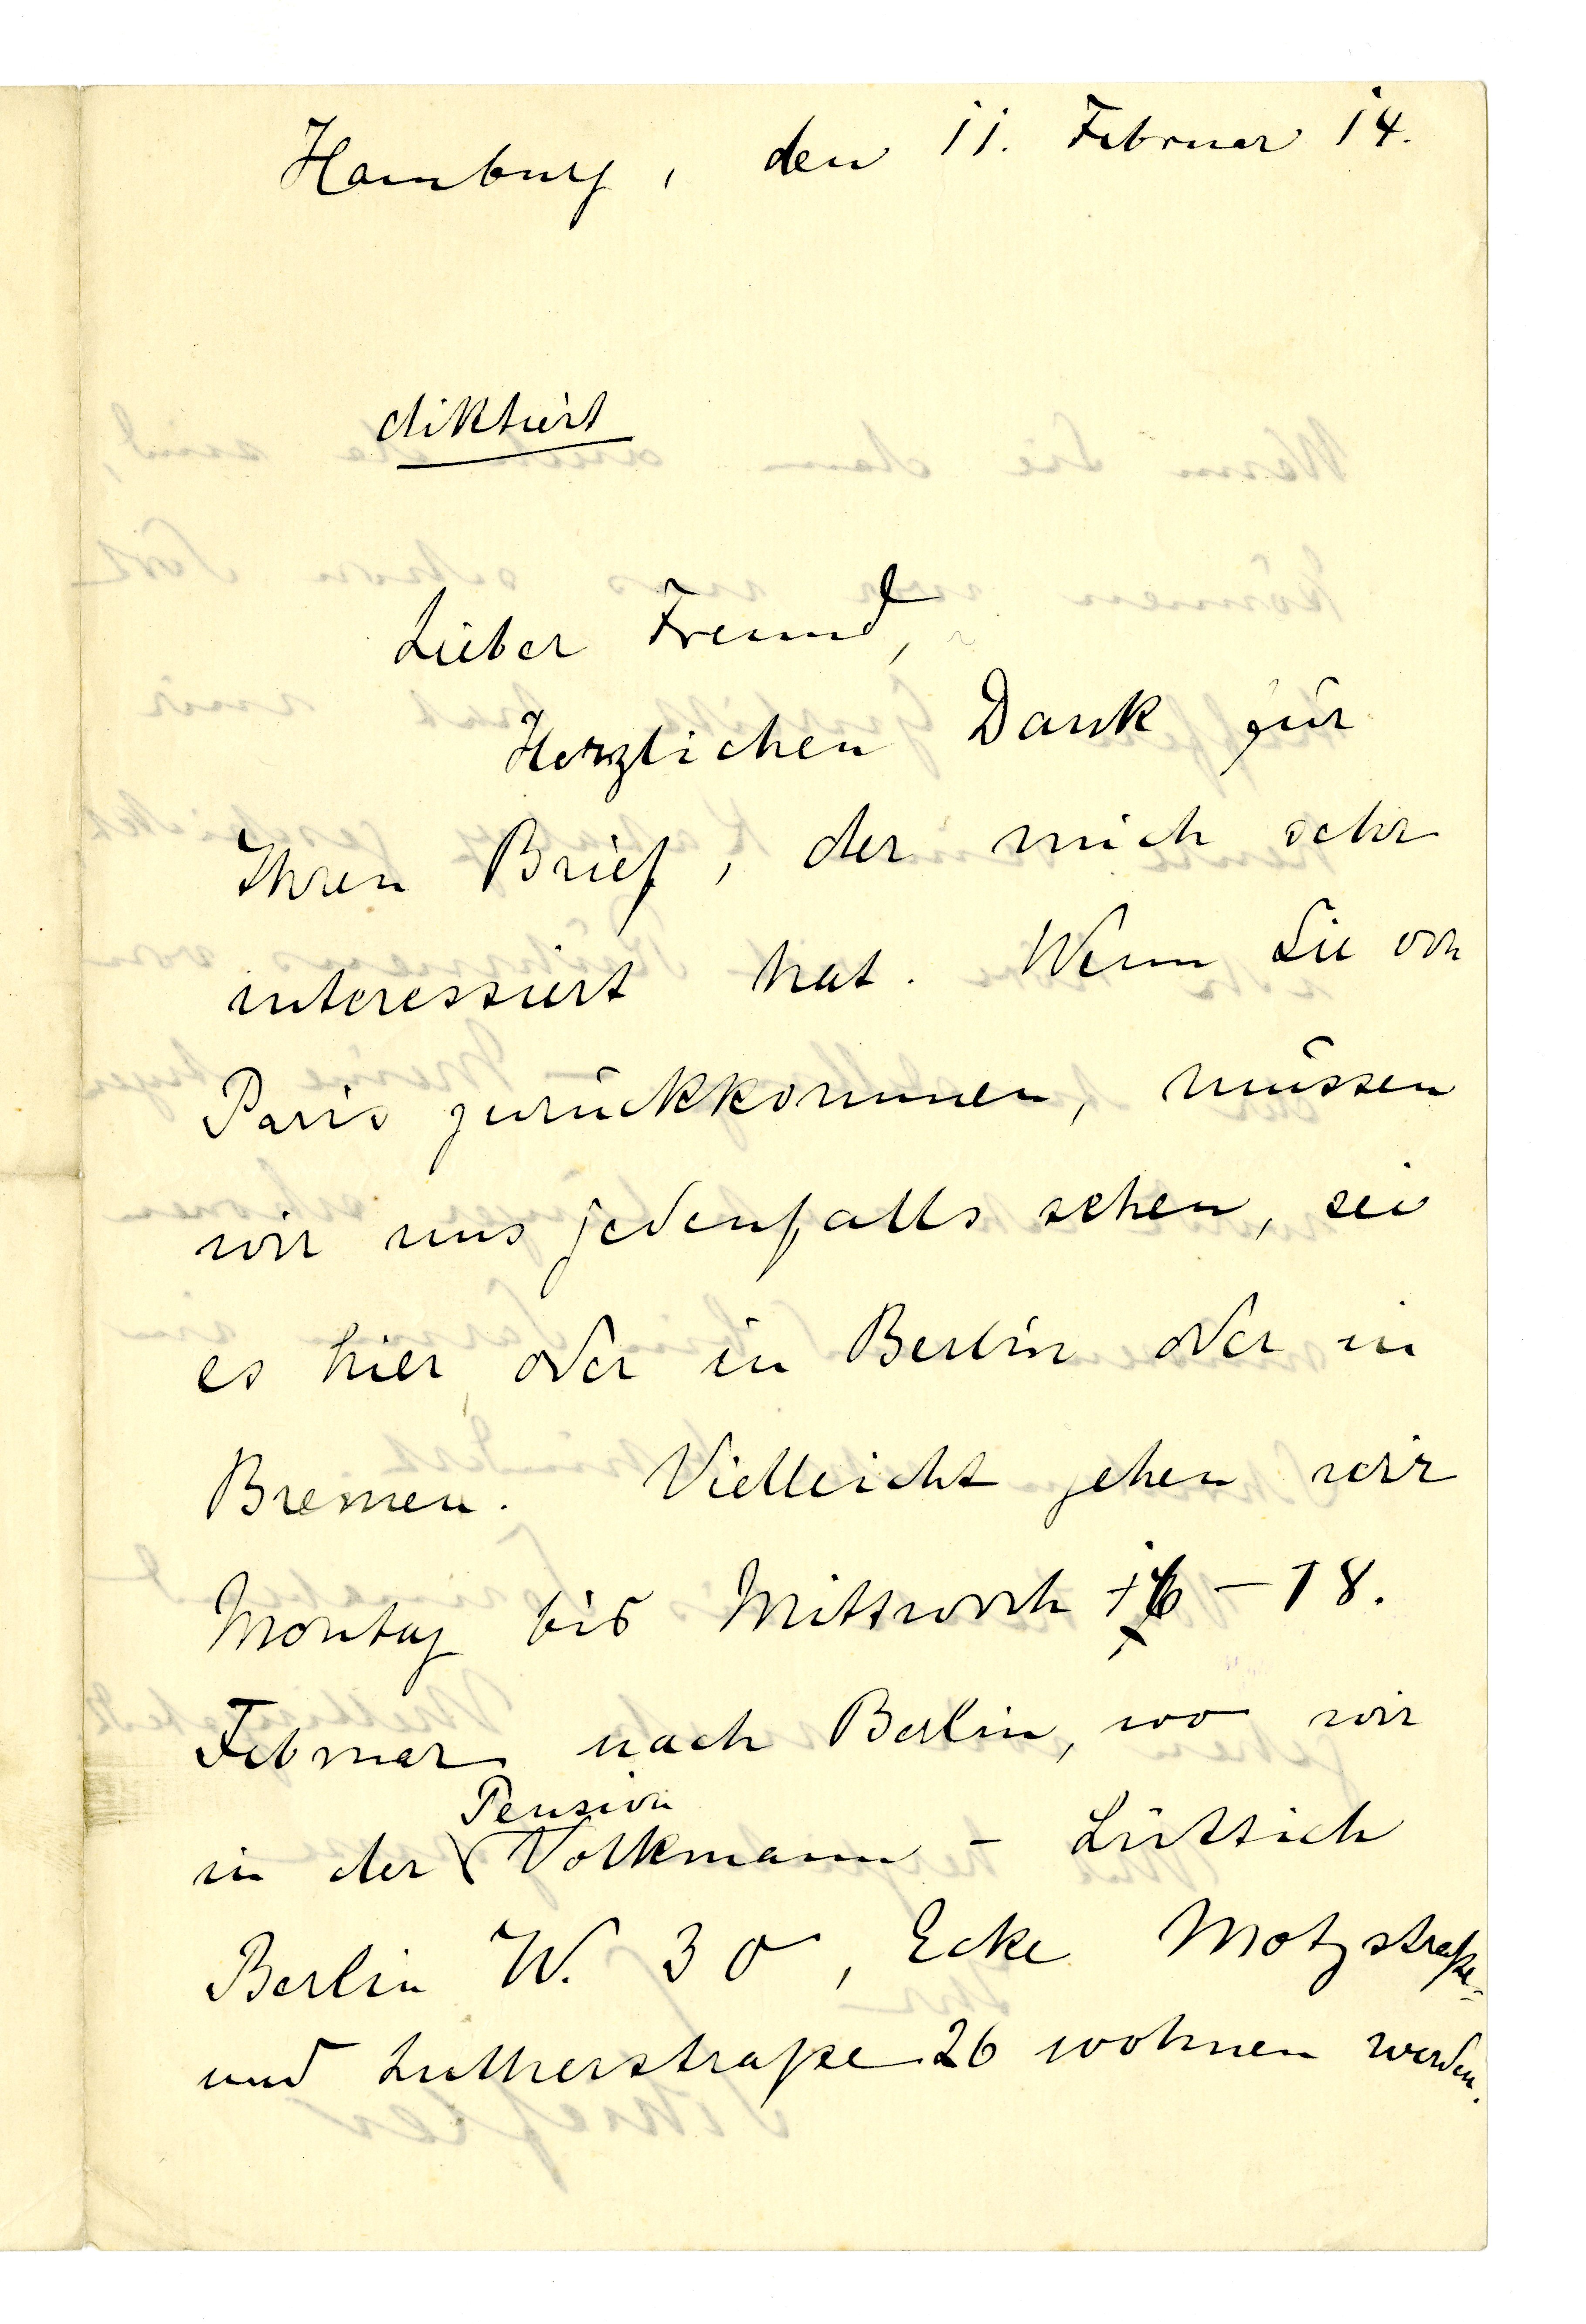 Hamburg, den 11. Februar 14.
diktiert
Lieber Freund,
Herzlichen Dank für
Ihren Brief, der mich sehr
interessiert hat. Wenn Sie von
Paris zurückkommen, müssen
wir uns jedenfalls sehen, sei
es hier oder in Berlin oder in
Bremen. Vielleicht gehen wir
Montag bis Mittwoch 16 - 18.
Februar nach Berlin, wo wir
Pension
in der Volkmann - Lüttich
Berlin W. 30, Ecke Motzstraße
und Lutherstraße 26 wohnen werden.